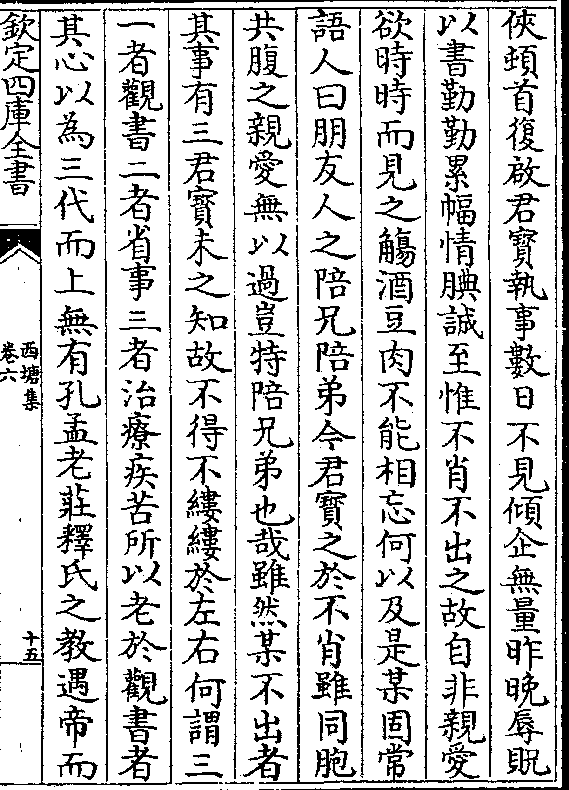 俠頓首復啟君寳執事數日不見傾企無量昨晚辱貺
以書勤勤累幅情腆誠至惟不肖不出之故自非親愛
欲時時而見之觴酒豆肉不能相忘何以及是某固常
語人曰朋友人之陪兄陪弟今君寳之於不肖雖同胞
共腹之親愛無以過豈特陪兄弟也哉雖然某不出者
其事有三君寳未之知故不得不縷縷於左右何謂三
一者觀書二者省事三者治療疾苦所以老於觀書者
其心以為三代而上無有孔孟老莊釋氏之教遇帝而
欽定四庫全書
西塘集
卷六
十五